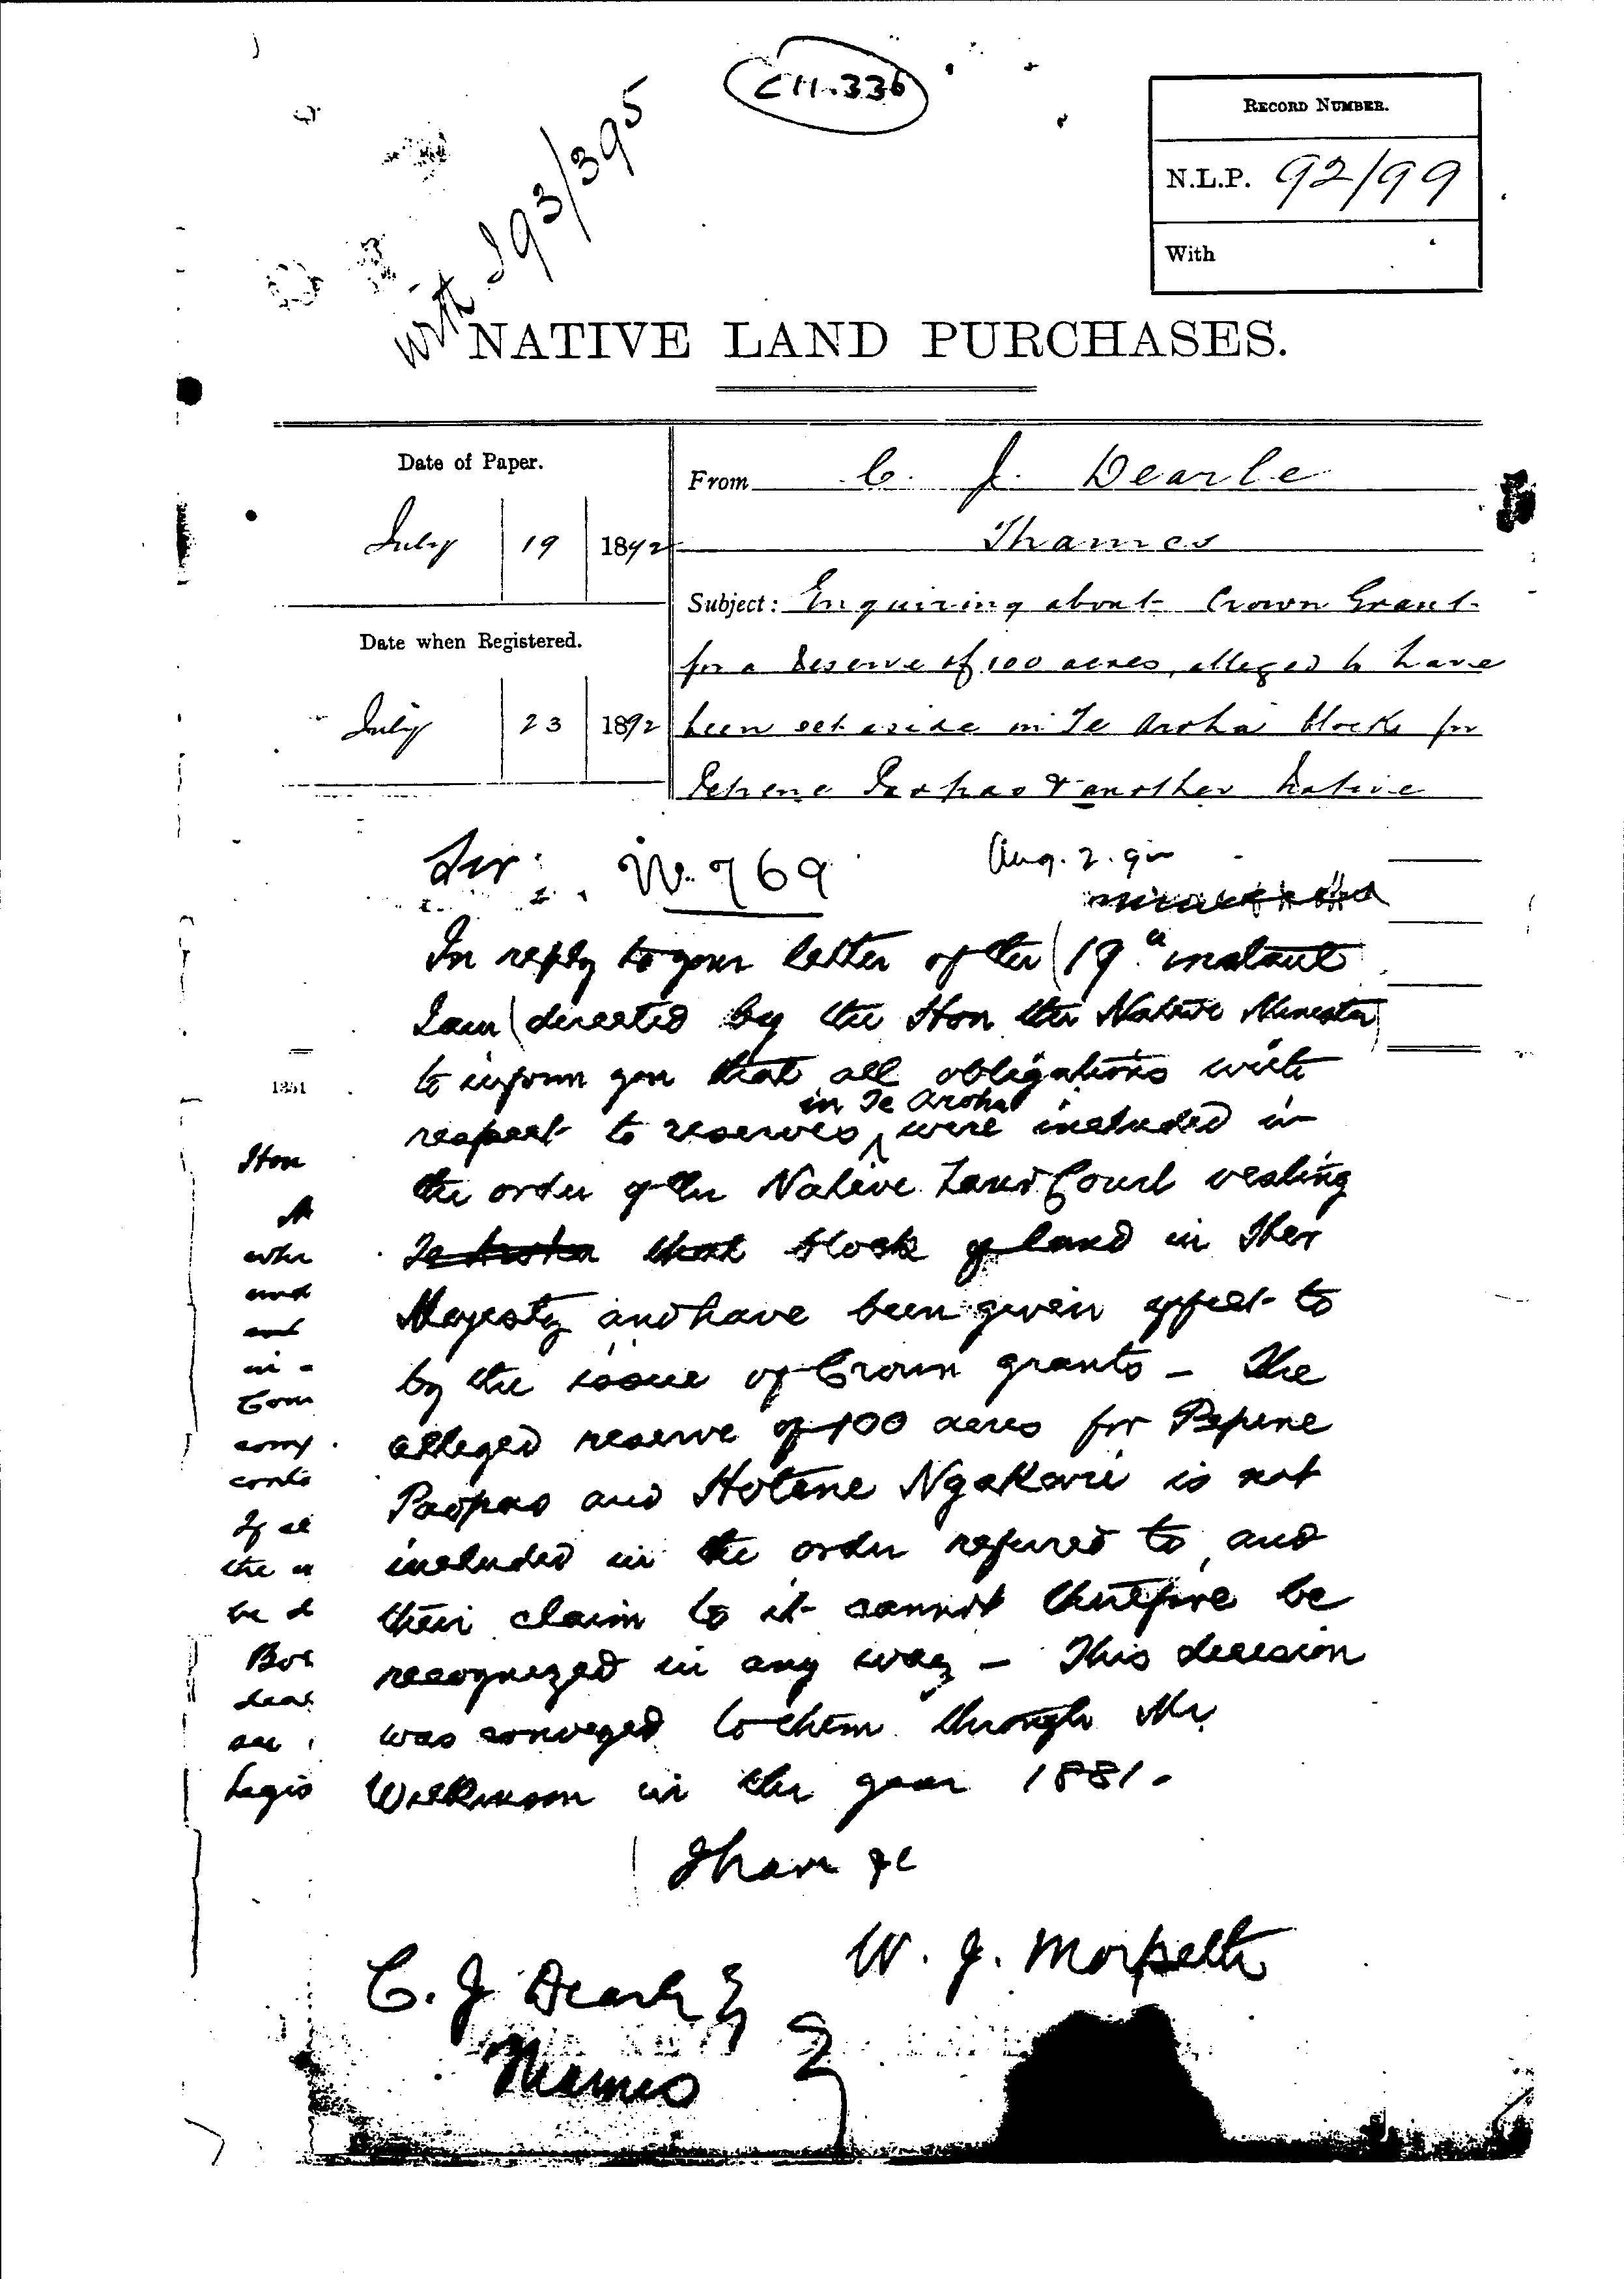 C11.336
with 93/395
RECORD NUMBER.
N.L.P. 92/99
With
NATIVE LAND PURCHASES.
Date of Paper.
July 19 1892
Date when Registered.
July 23 1892
From C. J. Dearle
Thames
Subject: Enquiring about Crown Grant
for a Reserve of 100 acres, alleged to have
been set aside in Te Aroha block for
& another Native
Sir: No. 769
Aug. 2. 92
In reply to your letter of the 19th instant
I am directed by the Hon the Native Minister
to inform you that all obligations with
respect to reserves in Te Aroha were included in
the order of the Native Land Court vesting
Te Aroha that block of land in Her
Majesty and have been given effect to
by the issue of Crown grants – The
alleged reserve of 100 acres for Pepene
Paopao and Hotene Ngakari is not
included in the order referred to, and
their claim to it cannot therefore be
recognized in any way – This decision
was conveyed to them through Mr
Wilkinson in the year 1881.
I have &c
W. J. Morpeth
C. J. Dearle
Thames
1351
Hon
whe
and
and
in
Com
comp
conta
If al
the
be d
deal
see
Legis